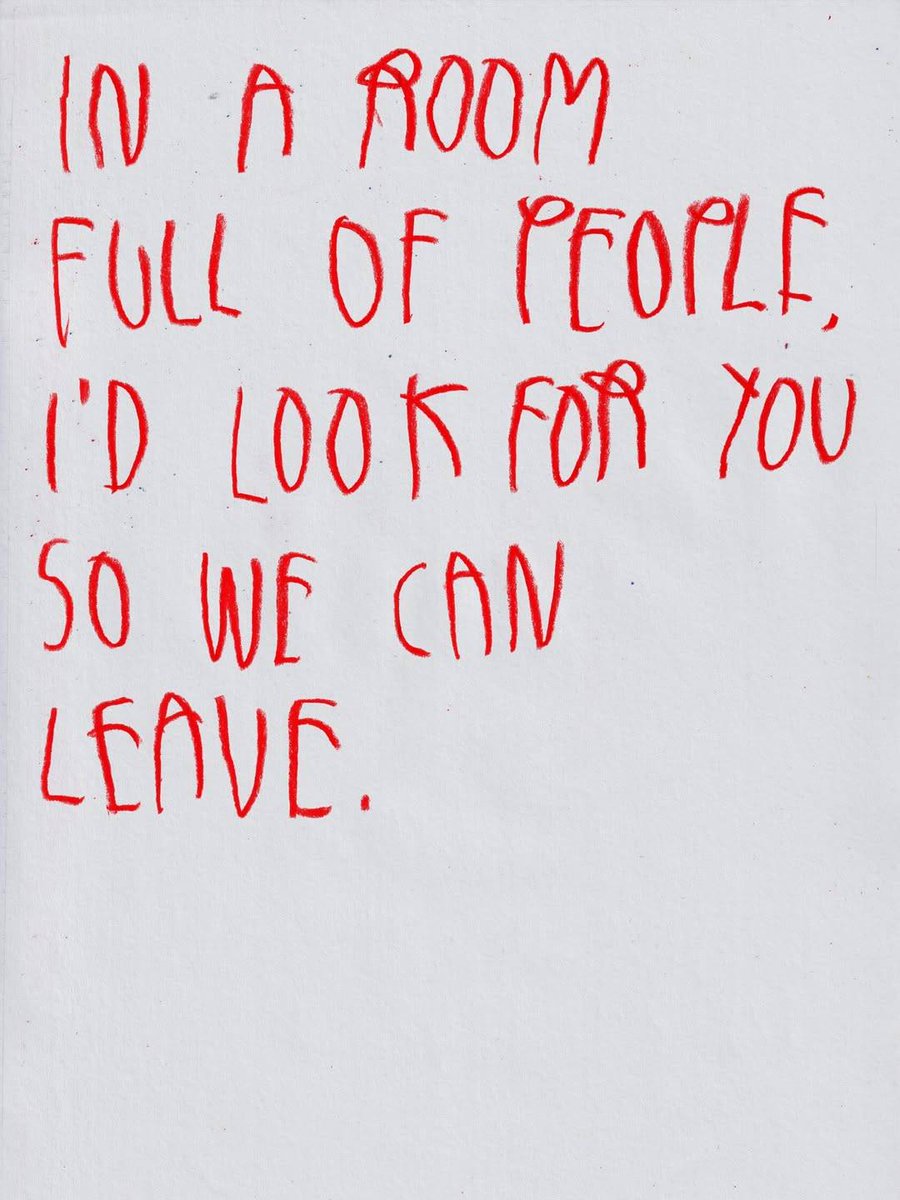 IN A ROOM
FULL OF PEOPLE,
I'D LOOK FOR YOU
SO WE CAN
LEAVE.